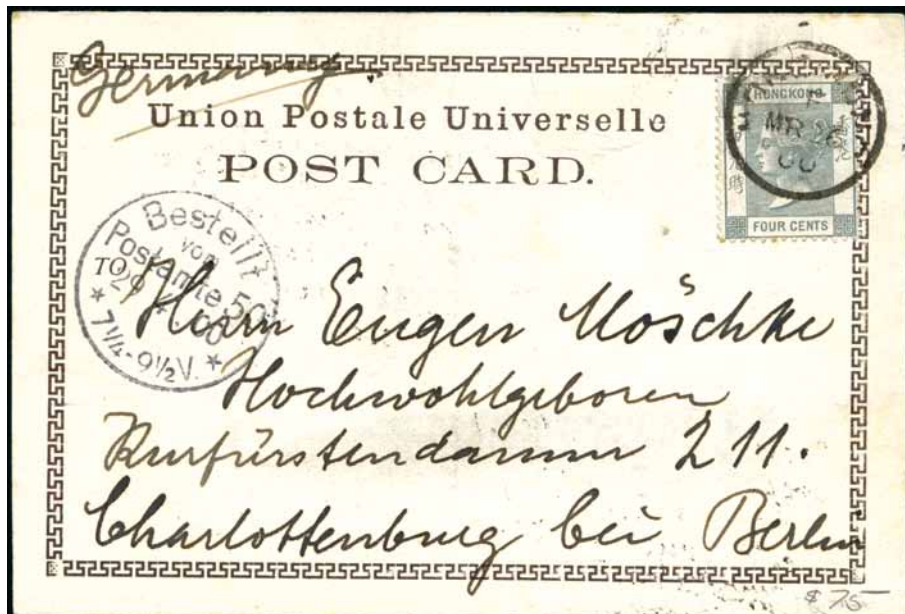 Germany.
Union Postale Universelle
POST CARD.
TO
HONGKONG
MR 26
00
FOUR CENTS
Bestellt
vom
Postamte 50
7¼-9½V.
Herrn Eugen Möschke
Hochwohlgeboren
Kurfürstendamm 211.
Charlottenburg bei Berlin
$75-